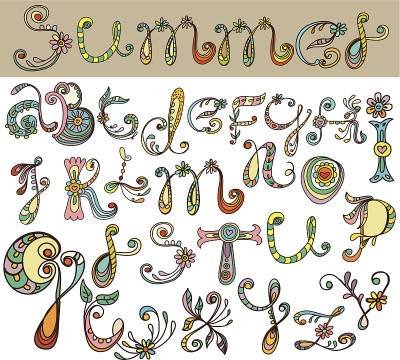 Summer
aBcdeFghi
jKlmno
qrstup
vwxyz